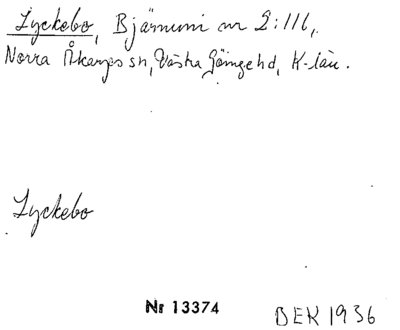 Lyckebo, Bjärnum nr 2:116,
Norra Åkarps sn, Västra Göinge hd, K-län.
Lyckebo
Nr 13374
BEK 1936